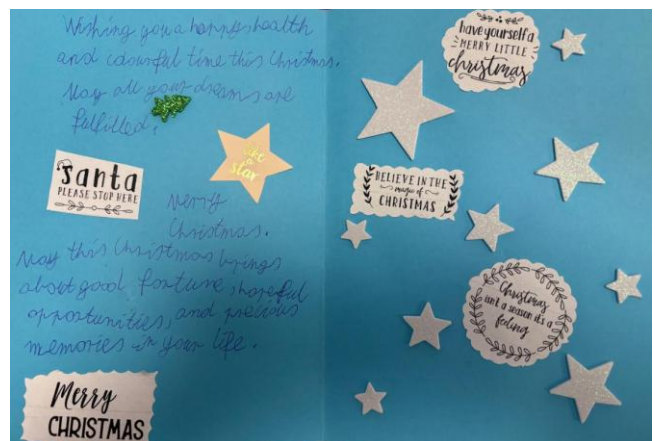 Wishing you a happy, health
and colourful time this Christmas.
May all your dreams are
fulfilled.
Santa
PLEASE STOP HERE
a
star
Merry
Christmas.
May this Christmas brings
about good fortune, hopeful
opportunities, and precious
memories in your life.
Merry
CHRISTMAS
have yourself a
MERRY LITTLE
christmas
BELIEVE IN THE
magic of
CHRISTMAS
Christmas
isn't a season it's a
feeling